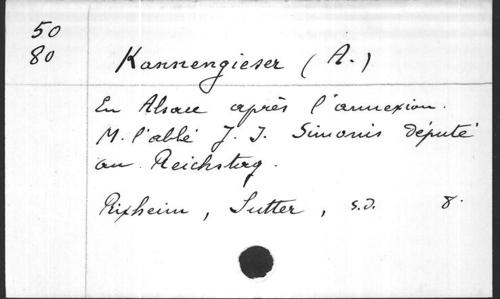 50
80
Kannengieser (A.)
En Alsace après l'annexion.
M. l'abbé J. I. Simonis député
au Reichstag.
Rixheim, Sutter, s.d. 8.